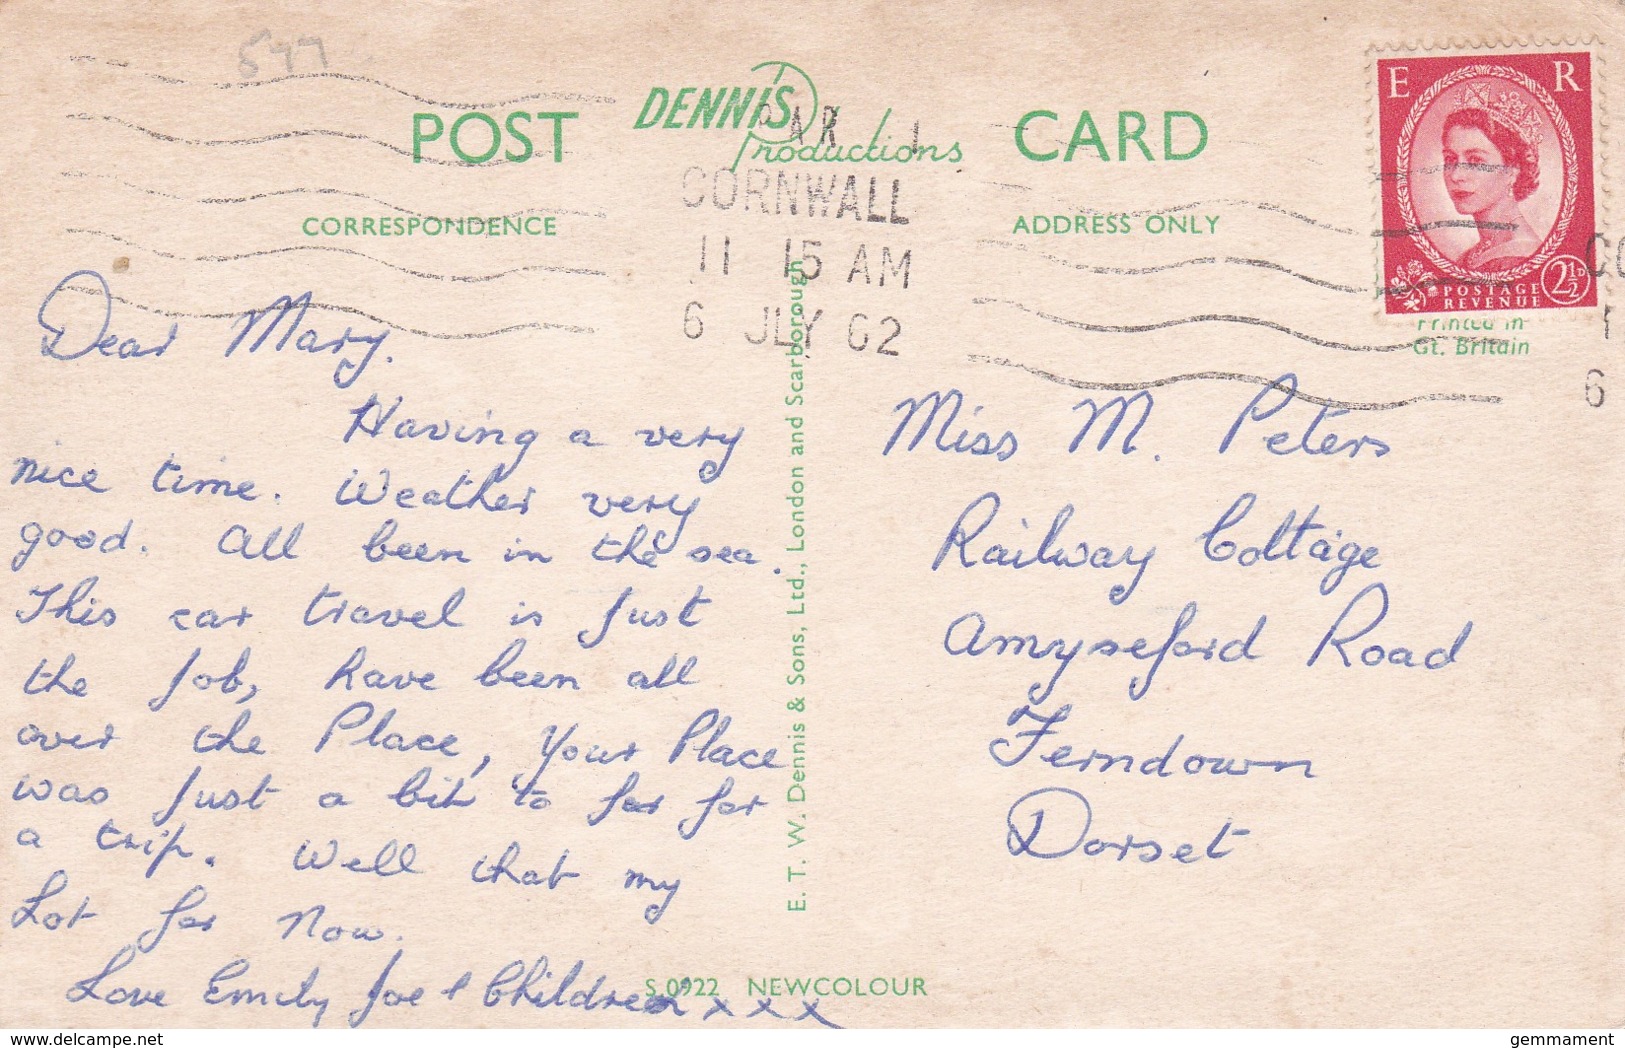 577
POST
DENNIS
Productions
CARD
CORRESPONDENCE
ADDRESS ONLY
CORNWALL
11 15 AM
6 JLY 62
E R
POSTAGE
REVENUE
2½D
Printed in
Gt. Britain
6
Dear Mary.
Having a very
nice time. Weather very
good. All been in the sea.
This car travel is just
the job, have been all
over the Place, Your Place
was just a bit to far for
a trip. Well that my
Lot for Now.
Love Emily Joe & Children x x x
E. T. W. Dennis & Sons, Ltd., London and Scarborough
Miss M. Peters
Railway Cottage
Amyseford Road
Ferndown
Dorset
S 0922 NEWCOLOUR
delcampe.net
gemmament